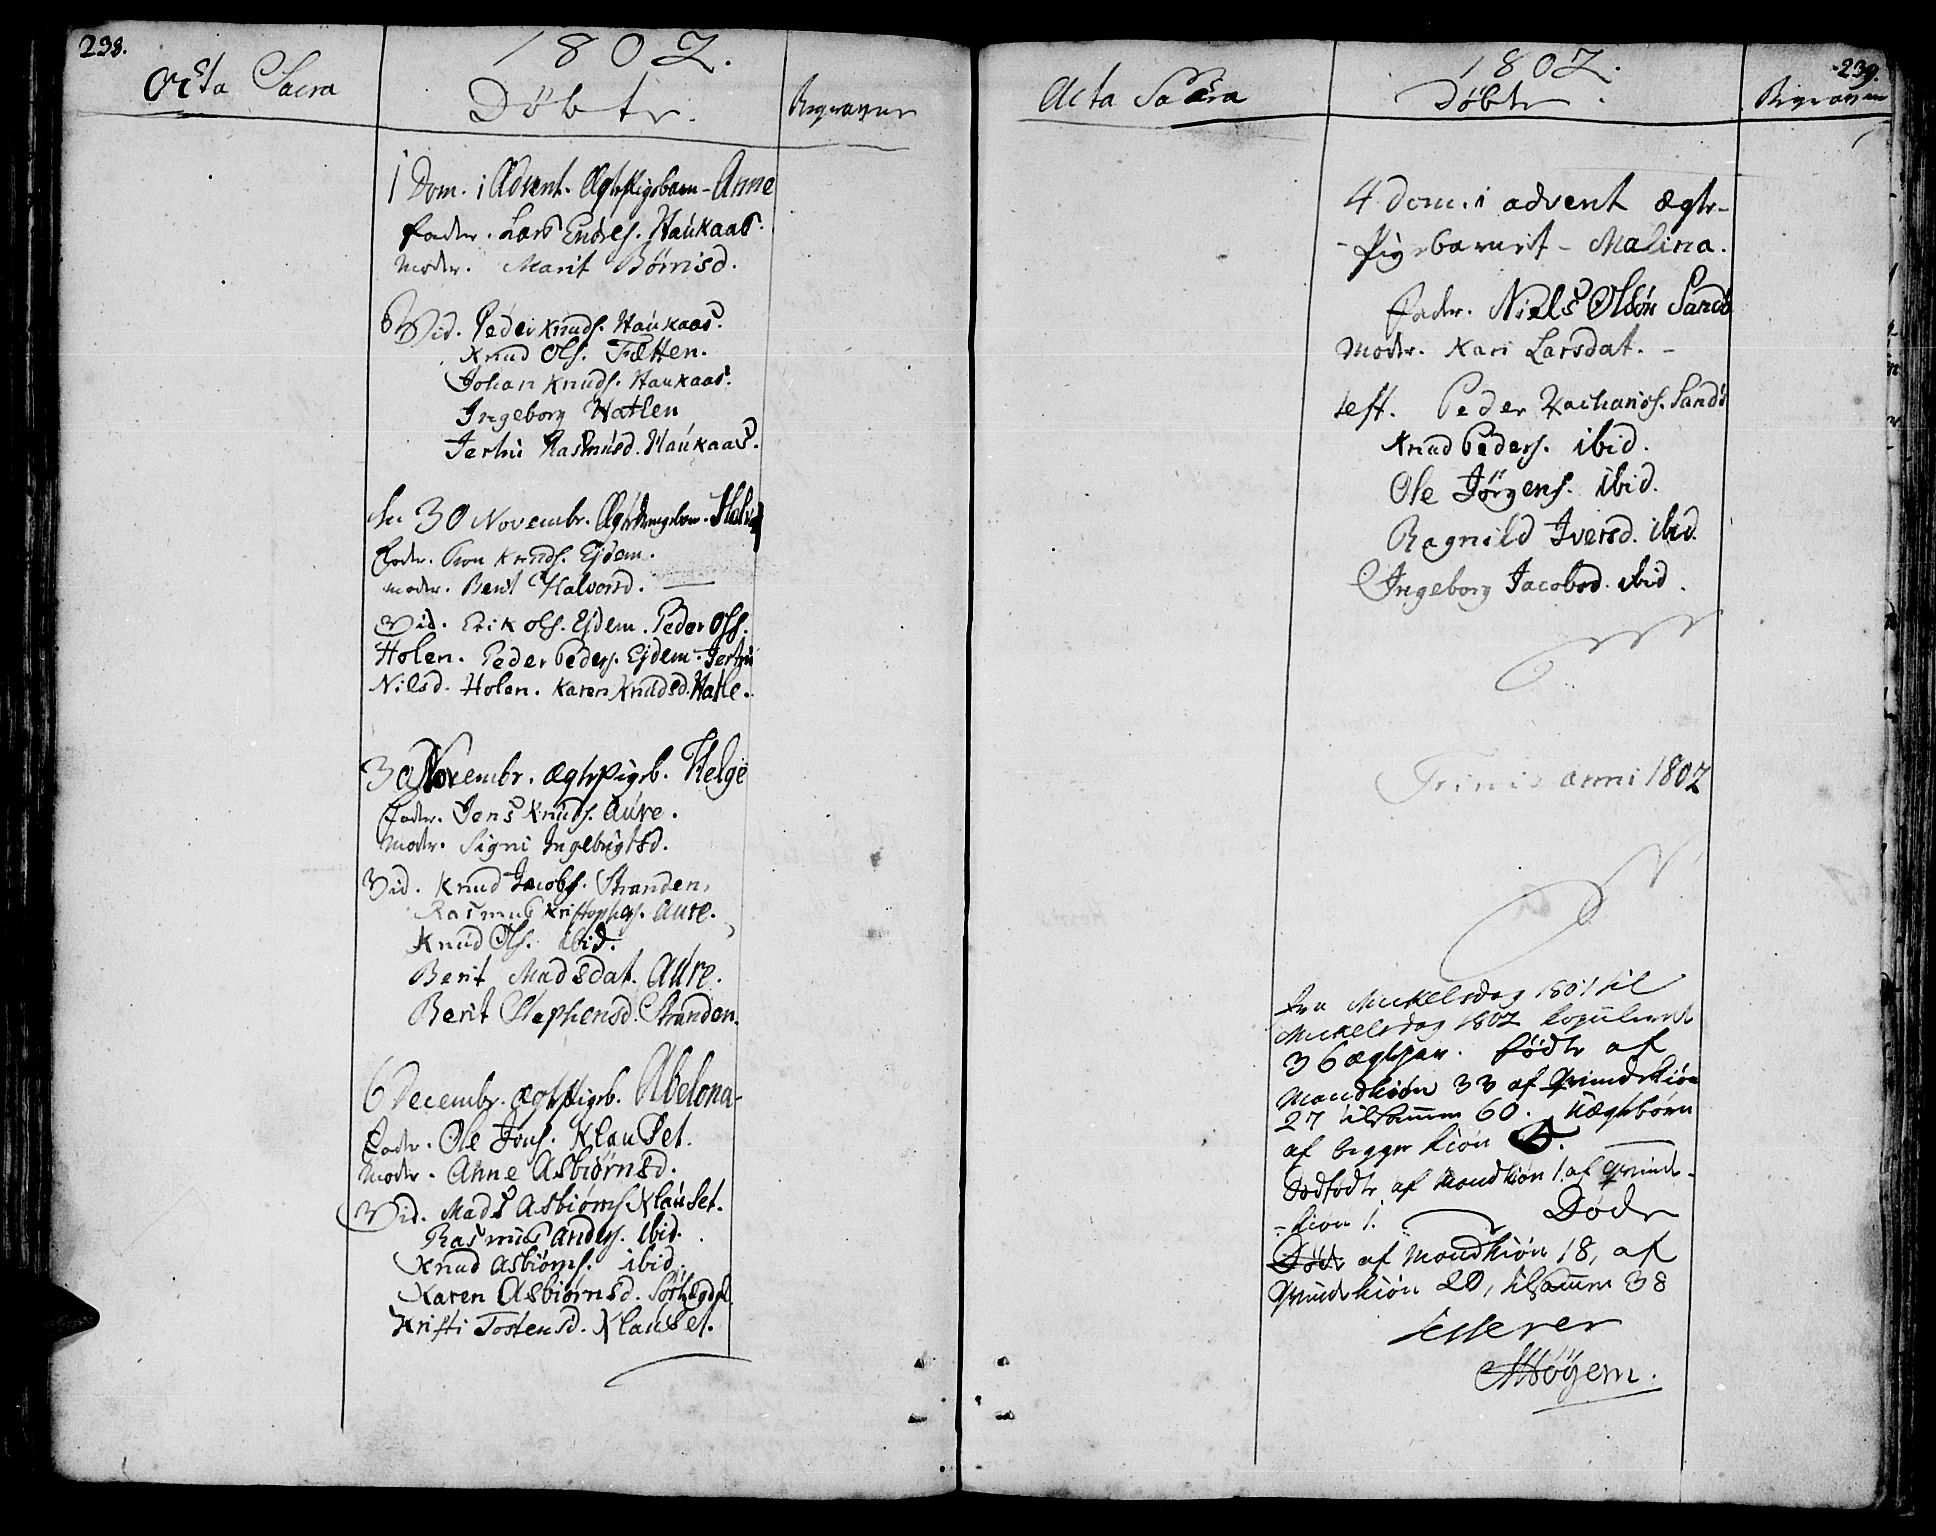 238.
1802.
Acta Sacra
Døbte.
Begravne
1 Dom. i Advent. Ægtepigebarn - Anne
Fader. Lars Endres. Haukaas.
Moder. Marit Børnisd.
Vid. Peder Knuds. Haukaas.
Knud Ols. Tætten.
Johan Knuds. Haukaas.
Ingeborg Hatlen
Jertru Rasmusd. Haukaas.
den 30 Novembr. Ægtedrengebarn.
Fader. Knuds. Ejdem.
Moder. Berit Halvorsd.
Vid. Erik Ols. Ejdem. Peder Ols.
Holen. Peder Peders. Ejdem. Jertru
Nilsd. Holen. Karen Knudsd. Hatle.
30 Novembr. Ægtepigeb. Helge
Fader. Jens Knuds. Aure.
Moder. Signi Ingebrigtsd.
Vid. Knud Jacobs. Stranden,
Rasmus Kristophers. Aure.
Knud Ols. ibid.
Berit Madsdat. Aure.
Berit Stephensd. Stranden.
6 Decembr. Ægtepigeb. Abelona.
Fader. Ole Jons. Klauset.
Moder. Anne Asbiørnsd.
Vid. Mads Asbiørns. Klauset.
Rasmus Anders. ibid.
Knud Asbiørns. ibid.
Karen Asbiørnsd.
Kristi Tostensd. Klauset.
239.
1802.
Acta Sacra
Døbte.
Begravne
4 dom. i advent ægte-
-pigebarnet - Malina.
Fader. Niels Olsøn Sandø
Moder. Kari Larsdat. -
test. Peder Zachariæs. Sandø
Knud Peders. ibid.
Ole Jørgens. ibid.
Ragnild Iversd. ibid.
Ingeborg Jacobsd. ibid.
Finis anni 1802
Fra Mickelsdag 1801 til
Mickelsdag 1802 Copulerede
36 ægtepar. Fødte af
Mandkiøn 33 af Qvindekiøn
27 tilsamm 60. Uægtebørn
af begge kiøn
Dødfødte af Mandkiøn 1. af Qvinde-
-kiøn 1.
Døde
Døde af Mandkiøn 18, af
Qvindekiøn 20, tilsamm 38
testerer